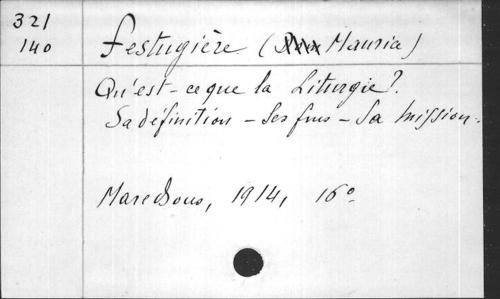 321
140
Festugière (Mauria)
Qu'est-ce que la Liturgie?
Sa définition - Ses fins - Sa mission.
Maredsous, 1914, 16°